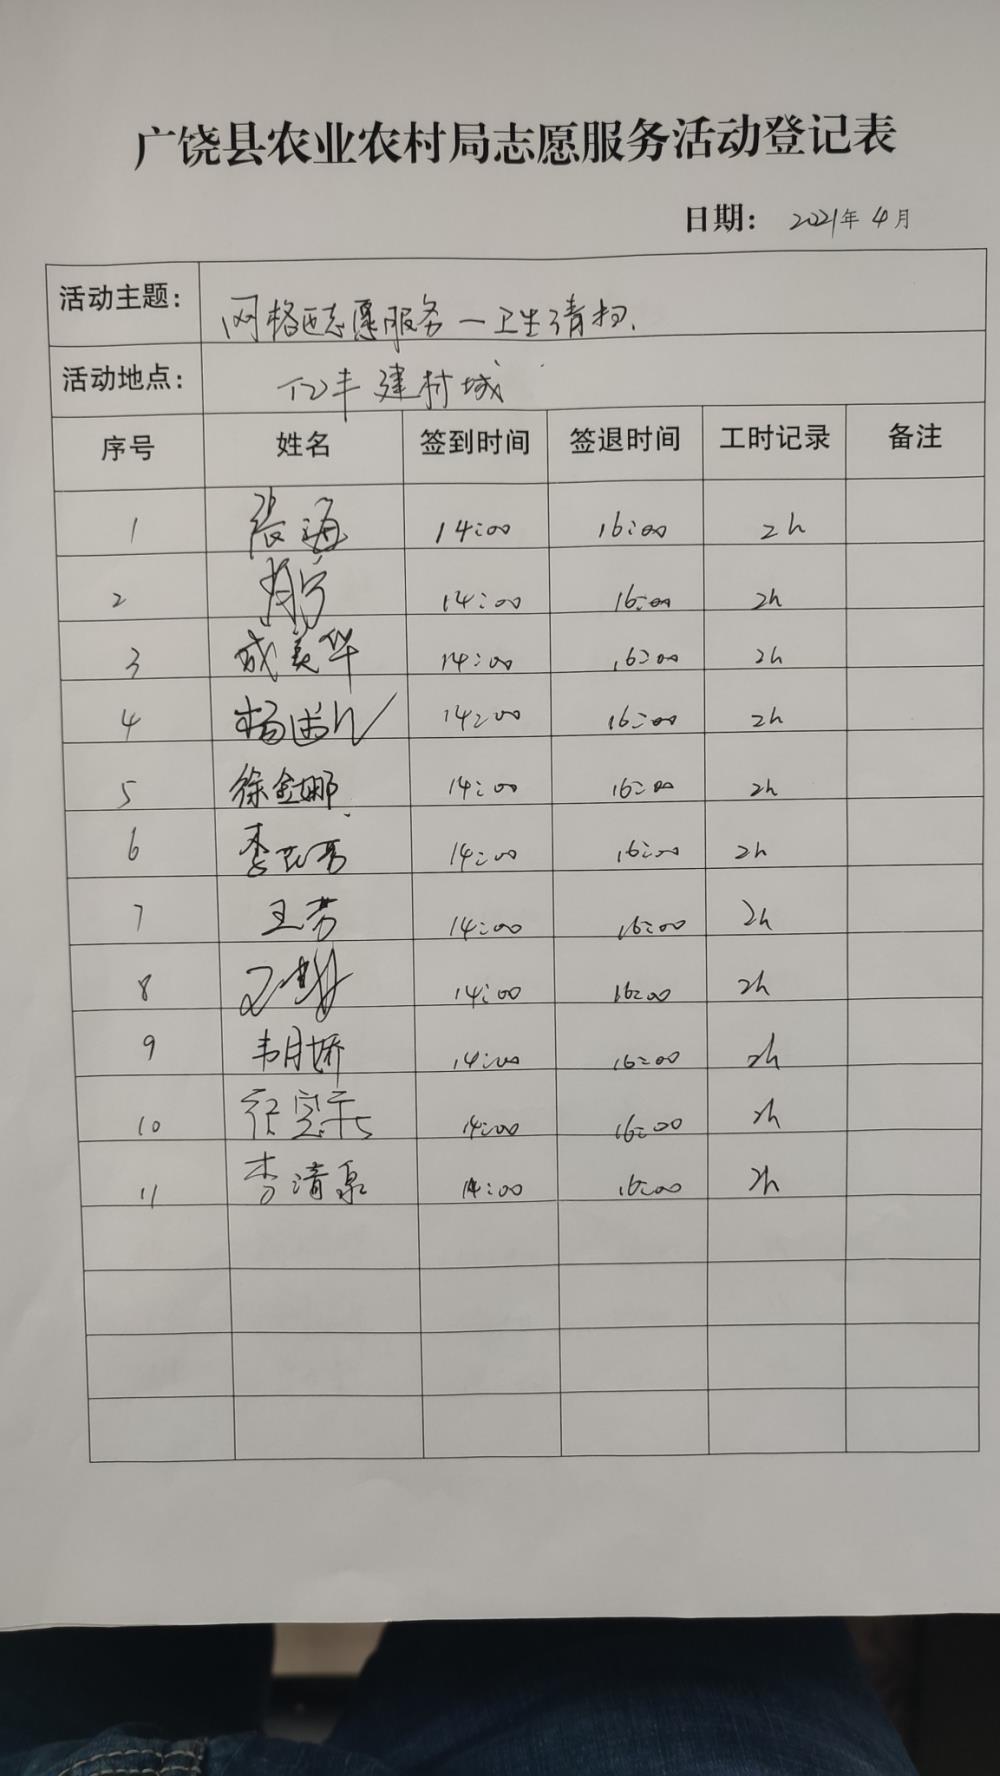 广饶县农业农村局志愿服务活动登记表
日期： 2021年4月
活动主题： 网格区志愿服务一卫生清扫.
活动地点： 亿丰建材城
序号 姓名 签到时间 签退时间 工时记录 备注
1 张海 14:00 16:00 2h
2 14:00 16:00 2h
3 成美华 14:00 16:00 2h
4 杨 14:00 16:00 2h
5 徐金娜 14:00 16:00 2h
6 李 14:00 16:00 2h
7 王芳 14:00 16:00 2h
8 14:00 16:00 2h
9 韦月娇 14:00 16:00 2h
10 14:00 16:00 2h
11 李清泉 14:00 16:00 2h